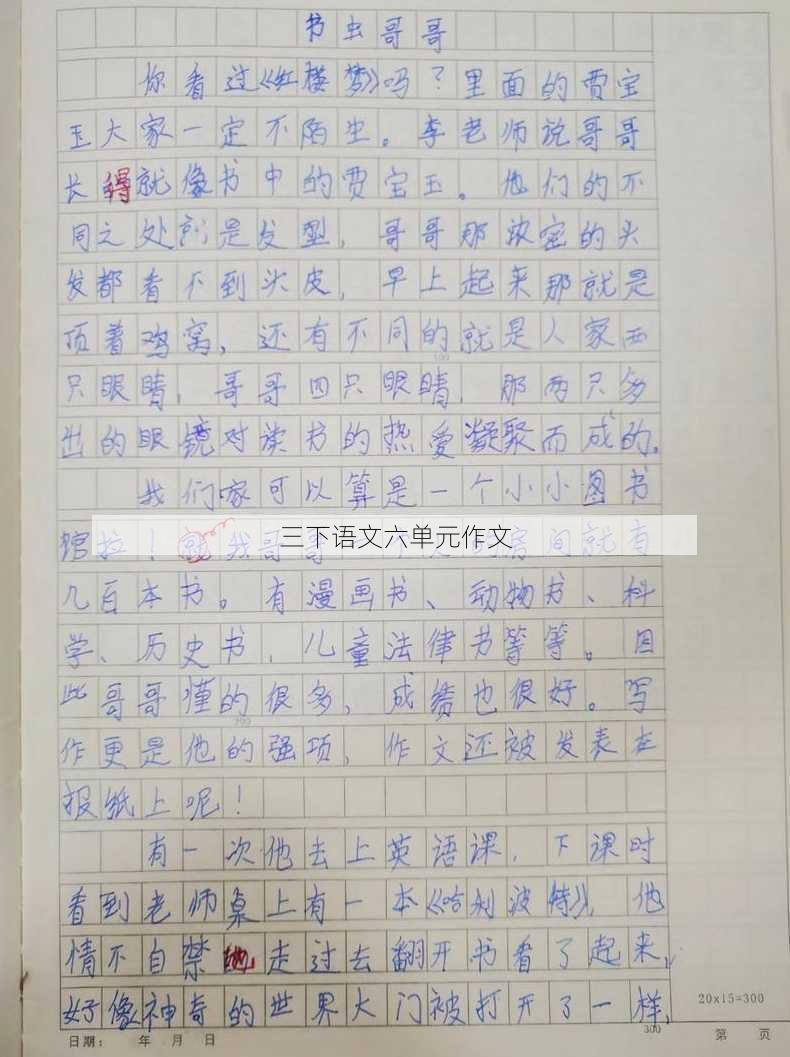 书虫哥哥
你看过《红楼梦》吗？里面的贾宝
玉大家一定不陌生。李老师说哥哥
长得就像书中的贾宝玉。他们的不
同之处就是发型，哥哥那浓密的头
发都看不到头皮，早上起来那就是
顶着鸡窝，还有不同的就是人家两
100
只眼睛，哥哥四只眼睛，那两只多
出的眼镜对读书的热爱凝聚而成的。
我们家可以算是一个小小图书
馆拉！就我哥哥房间就有
三下语文六单元作文
几百本书。有漫画书、动物书、科
学、历史书，儿童法律书等等。因
此哥哥懂的很多，成绩也很好。写
200
作更是他的强项，作文还被发表在
报纸上呢！
有一次他去上英语课，下课时
看到老师桌上有一本《哈利波特》，他
情不自禁地走过去翻开书看了起来，
好像神奇的世界大门被打开了一样，
20x15=300
300
日期： 年 月 日
第 页